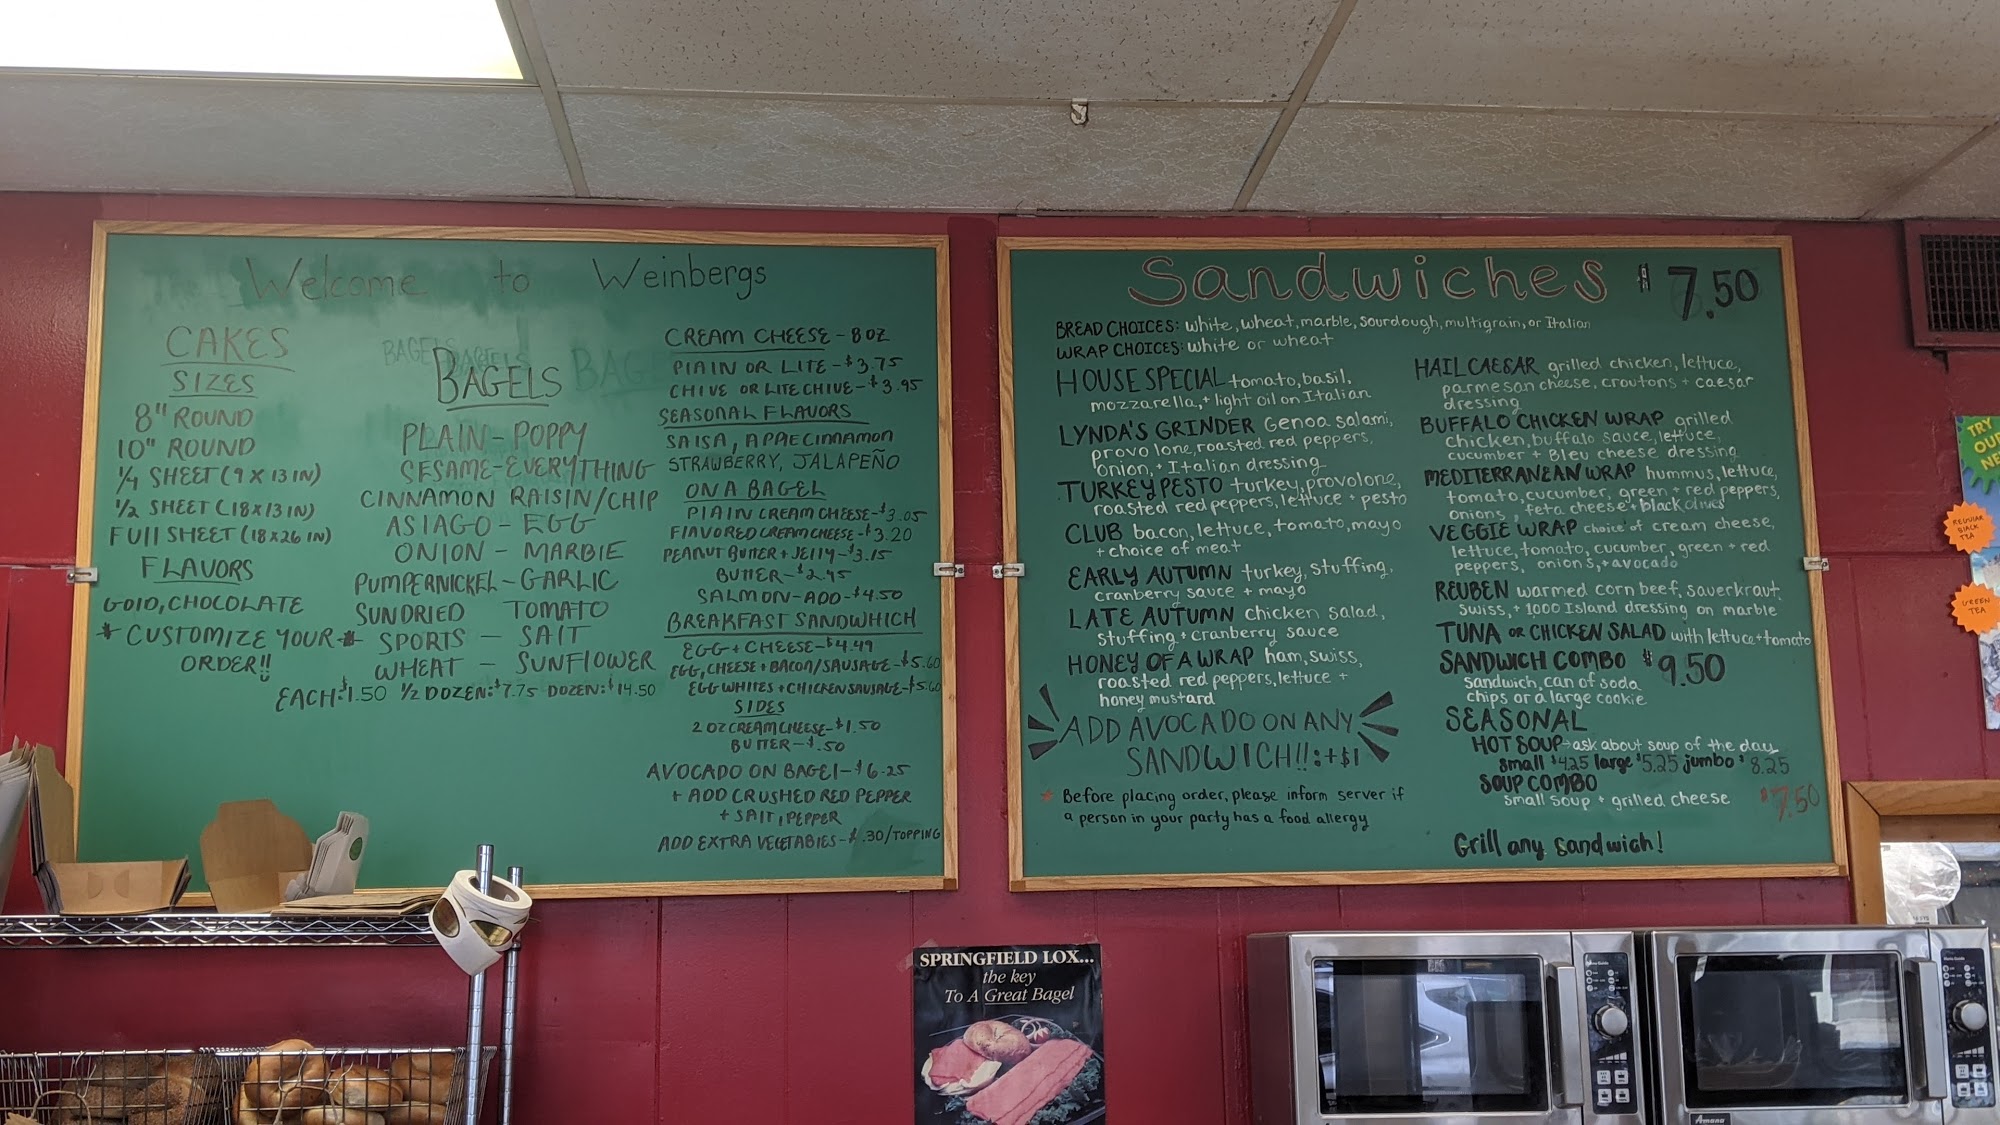 Welcome to Weinbergs
CAKES
SIZES
8" ROUND
10" ROUND
1/4 SHEET (9 X 13 IN)
1/2 SHEET (18X13 IN)
FULL SHEET (18X26 IN)
FLAVORS
GOLD, CHOCOLATE
* CUSTOMIZE YOUR *
ORDER!!
BAGELS
PLAIN - POPPY
SESAME - EVERYTHING
CINNAMON RAISIN/CHIP
ASIAGO - EGG
ONION - MARBLE
PUMPERNICKEL - GARLIC
SUNDRIED TOMATO
SPORTS - SALT
WHEAT - SUNFLOWER
EACH: $1.50 1/2 DOZEN: $7.75 DOZEN: $14.50
CREAM CHEESE - 8 OZ
PLAIN OR LITE - $3.75
CHIVE OR LITE CHIVE - $3.95
SEASONAL FLAVORS
SALSA, APPLE CINNAMON
STRAWBERRY, JALAPEÑO
ON A BAGEL
PLAIN CREAM CHEESE - $3.05
FLAVORED CREAM CHEESE - $3.20
PEANUT BUTTER + JELLY - $3.15
BUTTER - $2.45
SALMON - ADD - $4.50
BREAKFAST SANDWHICH
EGG + CHEESE - $4.49
EGG, CHEESE + BACON/SAUSAGE - $5.60
EGG WHITES + CHICKEN SAUSAGE - $5.60
SIDES
2 OZ CREAM CHEESE - $1.50
BUTTER - $.50
AVOCADO ON BAGEL - $6.25
+ ADD CRUSHED RED PEPPER
+ SALT, PEPPER
ADD EXTRA VEGETABLES - $.30/TOPPING
Sandwiches $7.50
BREAD CHOICES: white, wheat, marble, sourdough, multigrain, or Italian
WRAP CHOICES: white or wheat
HOUSE SPECIAL tomato, basil,
mozzarella, + light oil on Italian
LYNDA'S GRINDER Genoa salami,
provolone, roasted red peppers,
onion, + Italian dressing
TURKEY PESTO turkey, provolone,
roasted red peppers, lettuce + pesto
CLUB bacon, lettuce, tomato, mayo
+ choice of meat
EARLY AUTUMN turkey, stuffing,
cranberry sauce + mayo
LATE AUTUMN chicken salad,
stuffing + cranberry sauce
HONEY OF A WRAP ham, swiss,
roasted red peppers, lettuce +
honey mustard
ADD AVOCADO ON ANY
SANDWICH!!: +$1
* Before placing order, please inform server if
a person in your party has a food allergy
HAIL CAESAR grilled chicken, lettuce,
parmesan cheese, croutons + caesar
dressing
BUFFALO CHICKEN WRAP grilled
chicken, buffalo sauce, lettuce,
cucumber + Bleu cheese dressing
MEDITERRANEAN WRAP hummus, lettuce,
tomato, cucumber, green + red peppers,
onions, feta cheese + black olives
VEGGIE WRAP choice of cream cheese,
lettuce, tomato, cucumber, green + red
peppers, onions, + avocado
REUBEN warmed corn beef, sauerkraut,
swiss, + 1000 Island dressing on marble
TUNA OR CHICKEN SALAD with lettuce + tomato
SANDWICH COMBO $9.50
sandwich, can of soda
chips or a large cookie
SEASONAL
HOT SOUP - ask about soup of the day
small $4.25 large $5.25 jumbo $8.25
SOUP COMBO
small soup + grilled cheese $7.50
Grill any sandwich!
TRY
OUR
NE
REGULAR
BLACK
TEA
GREEN
TEA
SPRINGFIELD LOX...
the key
To A Great Bagel
Amana